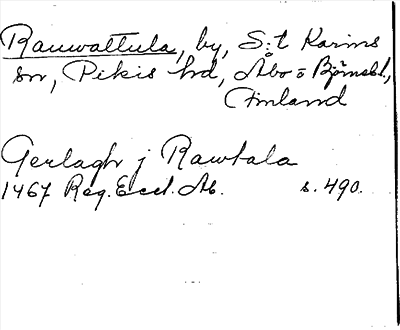 Rauwattula, by, S:t Karins
sn, Pikis hd, Åbo o Björnebl.,
Finland
Gerlagh j Rawtala
1467 Reg. Eccl. Ab. s. 490.